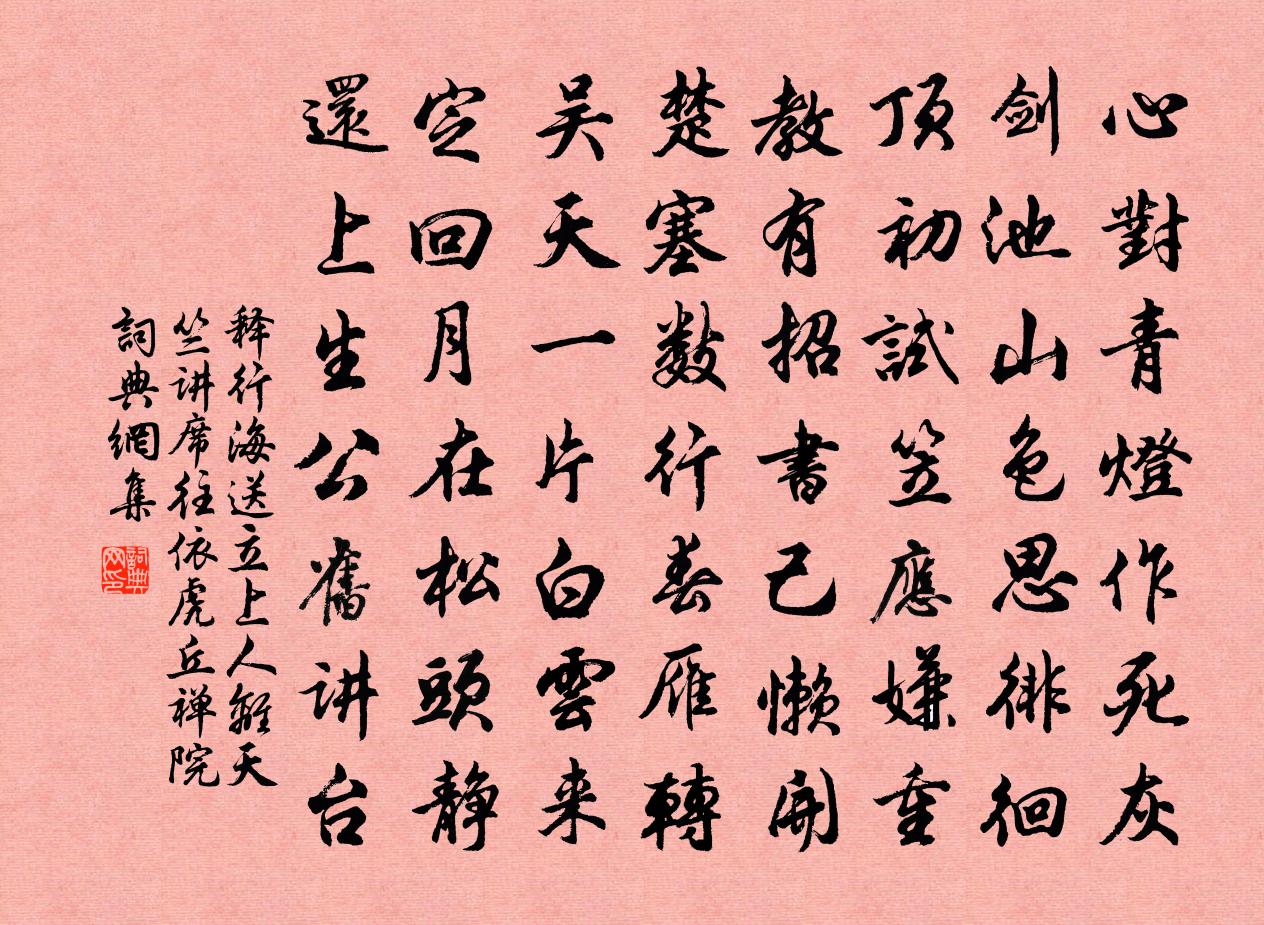 心對青燈作死灰
劍池山色思徘徊
頂初試笠應嫌重
教有招書已懶開
楚塞數行春雁轉
吴天一片白雲来
定回月在松頭静
還上生公舊讲台
释行海送立上人離天
竺讲席往依虎丘禅院
詞典網集
詞典
网印